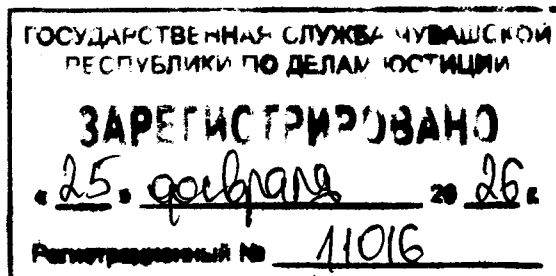 ГОСУДАРСТВЕННАЯ СЛУЖБА ЧУВАШСКОЙ
РЕСПУБЛИКИ ПО ДЕЛАМ ЮСТИЦИИ
ЗАРЕГИСТРИРОВАНО
« 25 » февраля 20 26 г.
Регистрационный № 11016